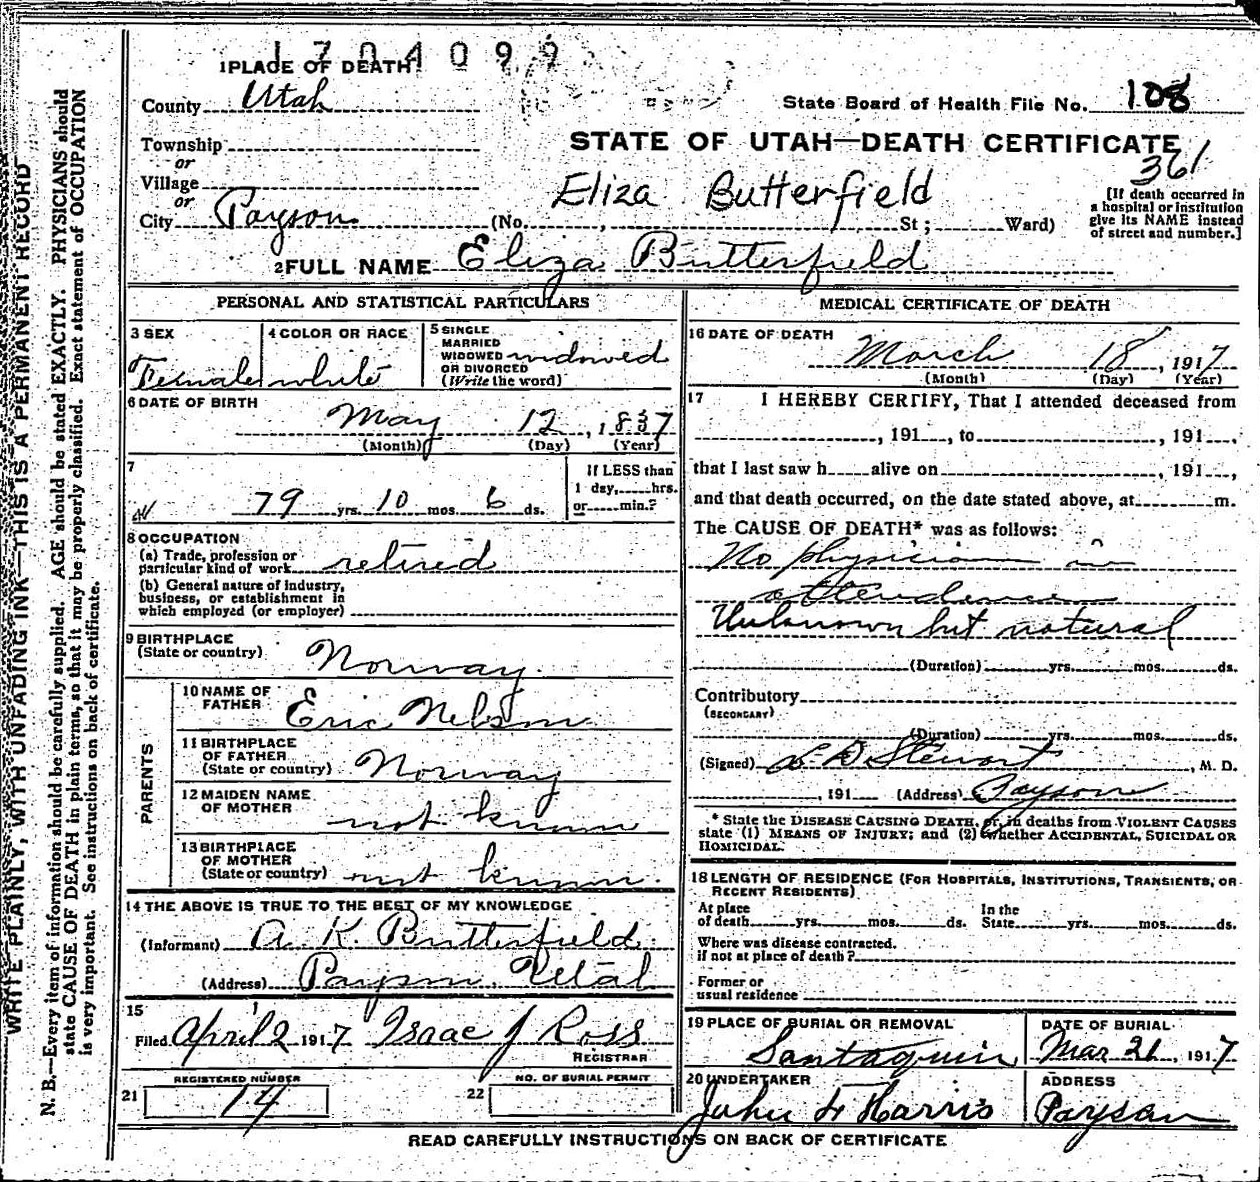 1704099
1 PLACE OF DEATH
County Utah
State Board of Health File No. 108
Township
or
Village
or
City Payson
STATE OF UTAH—DEATH CERTIFICATE
361
Eliza Butterfield
(No. , St ; Ward)
[If death occurred in
a hospital or institution
give its NAME instead
of street and number.]
2 FULL NAME Eliza Butterfield
PERSONAL AND STATISTICAL PARTICULARS
3 SEX
Female
4 COLOR OR RACE
white
5 SINGLE
MARRIED
WIDOWED widowed
OR DIVORCED
(Write the word)
6 DATE OF BIRTH
May 12, 1837
(Month) (Day) (Year)
7
79 yrs. 10 mos. 6 ds.
If LESS than
1 day, hrs.
or min.?
8 OCCUPATION
(a) Trade, profession or
particular kind of work retired
(b) General nature of industry,
business, or establishment in
which employed (or employer)
9 BIRTHPLACE
(State or country) Norway.
PARENTS
10 NAME OF
FATHER Eric Nelson
11 BIRTHPLACE
OF FATHER
(State or country) Norway
12 MAIDEN NAME
OF MOTHER not known
13 BIRTHPLACE
OF MOTHER
(State or country) not known.
14 THE ABOVE IS TRUE TO THE BEST OF MY KNOWLEDGE
(Informant) A K. Butterfield
(Address) Payson, Utah
15
Filed April 2 1917 Isaac J Ross
REGISTRAR
REGISTERED NUMBER
21 14
NO. OF BURIAL PERMIT
22
MEDICAL CERTIFICATE OF DEATH
16 DATE OF DEATH
March 18, 1917
(Month) (Day) (Year)
17 I HEREBY CERTIFY, That I attended deceased from
, 191 , to , 191 ,
that I last saw h alive on , 191 ,
and that death occurred, on the date stated above, at m.
The CAUSE OF DEATH* was as follows:
No physician in
attendance
Unknown but natural
(Duration) yrs. mos. ds.
Contributory
(SECONDARY)
(Duration) yrs. mos. ds.
(Signed) L D Stewart, M. D.
, 191 (Address) Payson
* State the DISEASE CAUSING DEATH, or, in deaths from VIOLENT CAUSES
state (1) MEANS OF INJURY; and (2) whether ACCIDENTAL, SUICIDAL OR
HOMICIDAL.
18 LENGTH OF RESIDENCE (FOR HOSPITALS, INSTITUTIONS, TRANSIENTS, OR
RECENT RESIDENTS)
At place In the
of death yrs. mos. ds. State yrs. mos. ds.
Where was disease contracted.
if not at place of death?
Former or
usual residence
19 PLACE OF BURIAL OR REMOVAL
Santaquin
DATE OF BURIAL
Mar 21, 1917
20 UNDERTAKER
John F Harris
ADDRESS
Payson
READ CAREFULLY INSTRUCTIONS ON BACK OF CERTIFICATE
WRITE PLAINLY, WITH UNFADING INK—THIS IS A PERMANENT RECORD
N. B.—Every item of information should be carefully supplied. AGE should be stated EXACTLY. PHYSICIANS should
state CAUSE OF DEATH in plain terms, so that it may be properly classified. Exact statement of OCCUPATION
is very important. See instructions on back of certificate.